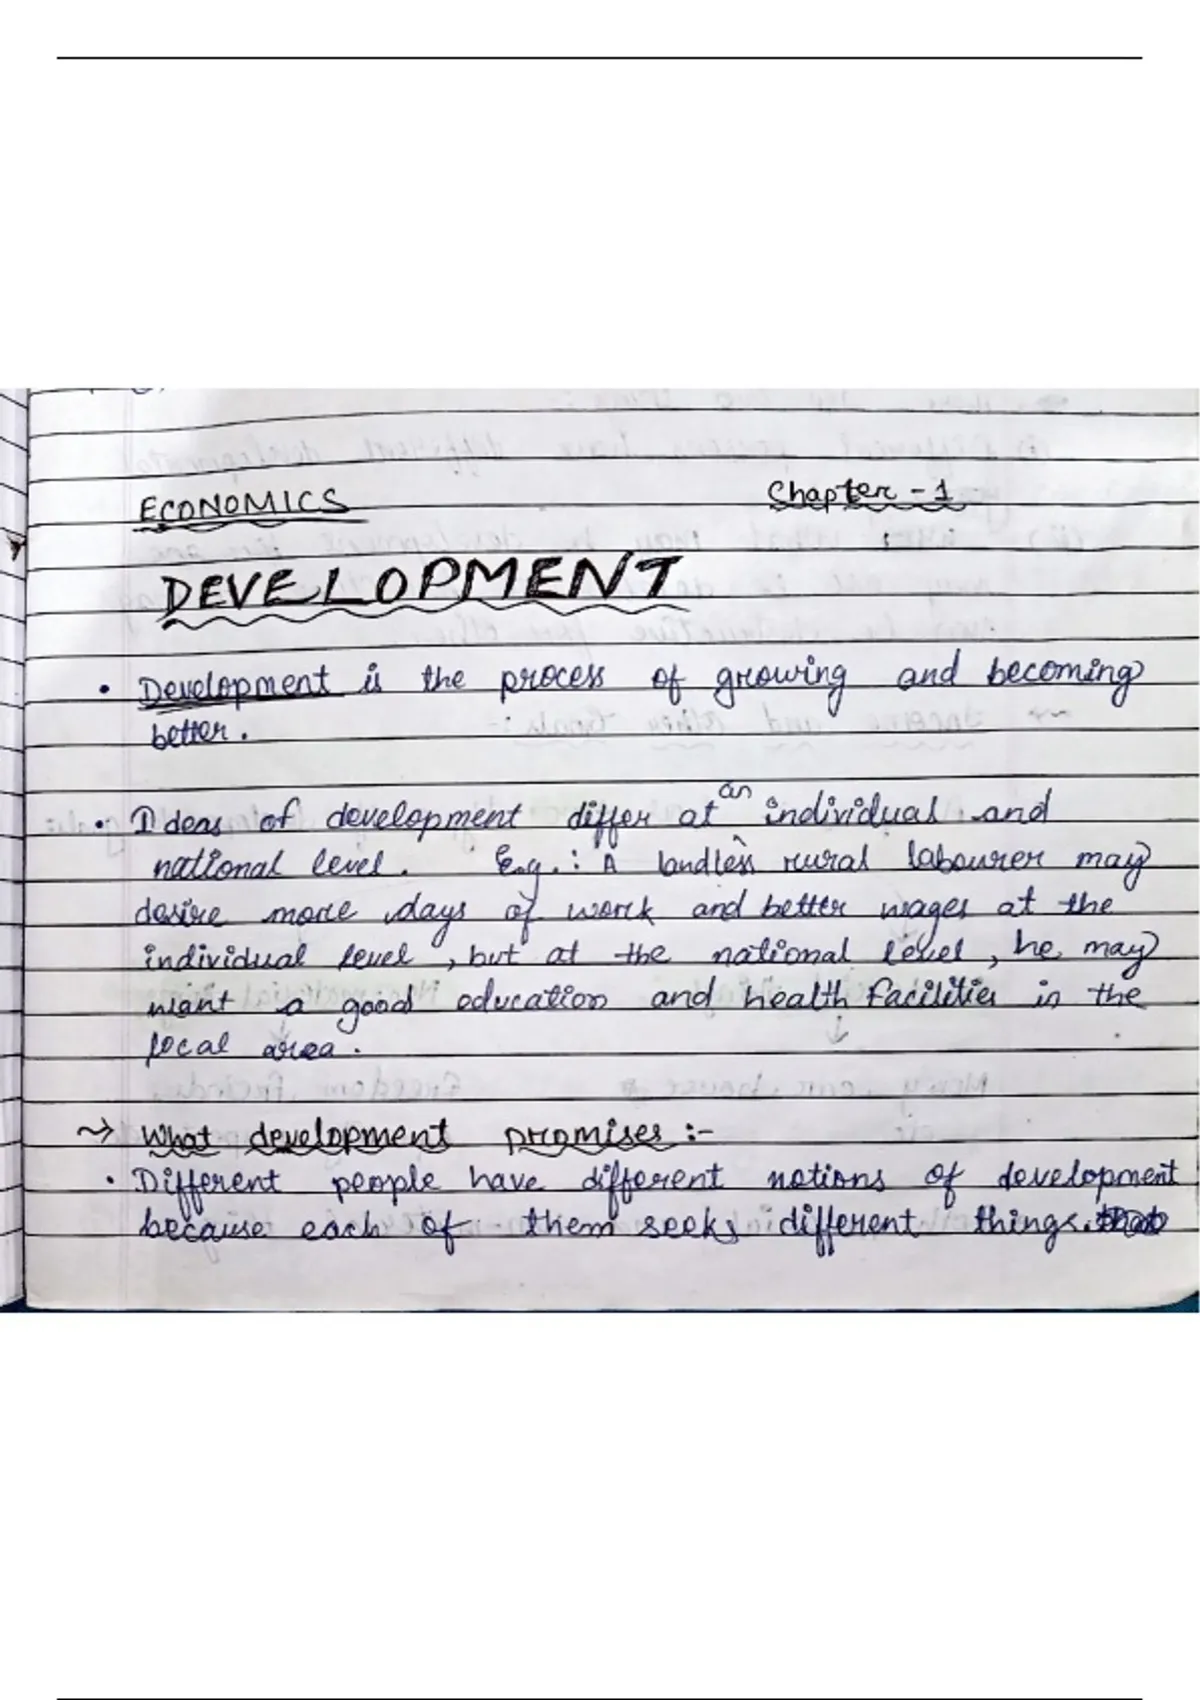 ECONOMICS Chapter - 1
DEVELOPMENT
• Development is the process of growing and becoming
better.
• Ideas of development differ at an individual and
national level. E.g. : A landless rural labourer may
desire more days of work and better wages at the
individual level, but at the national level, he may
want a good education and health facilities in the
local area.
→ What development promises :-
• Different people have different notions of development
because each of them seeks different things.